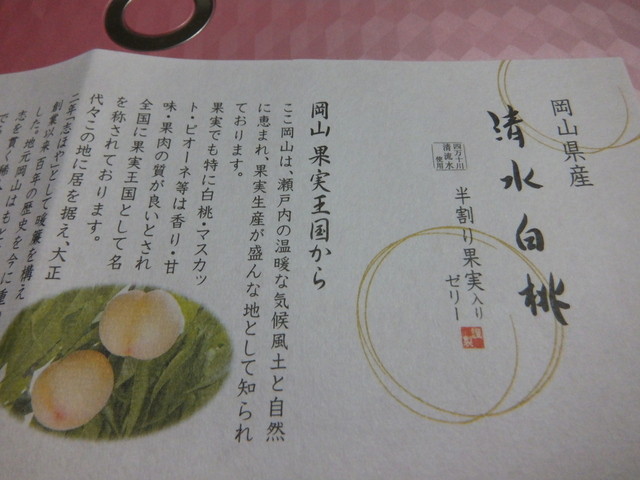 岡山県産
清水白桃
四万十川
清流水
使用
半割り果実入り
ゼリー
岡山 果実王国から
ここ岡山は、瀬戸内の温暖な気候風土と自然
に恵まれ、果実生産が盛んな地として知られ
ております。
果実でも特に白桃・マスカッ
ト・ピオーネ等は香り・甘
味・果肉の質が良いとされ
全国に果実王国として名
を称されております。
代々この地に居を据え、大正
二年「志ほや」として暖簾を構え
創業以来百年の歴史を今に
した。地元岡山はもと
志を貫く